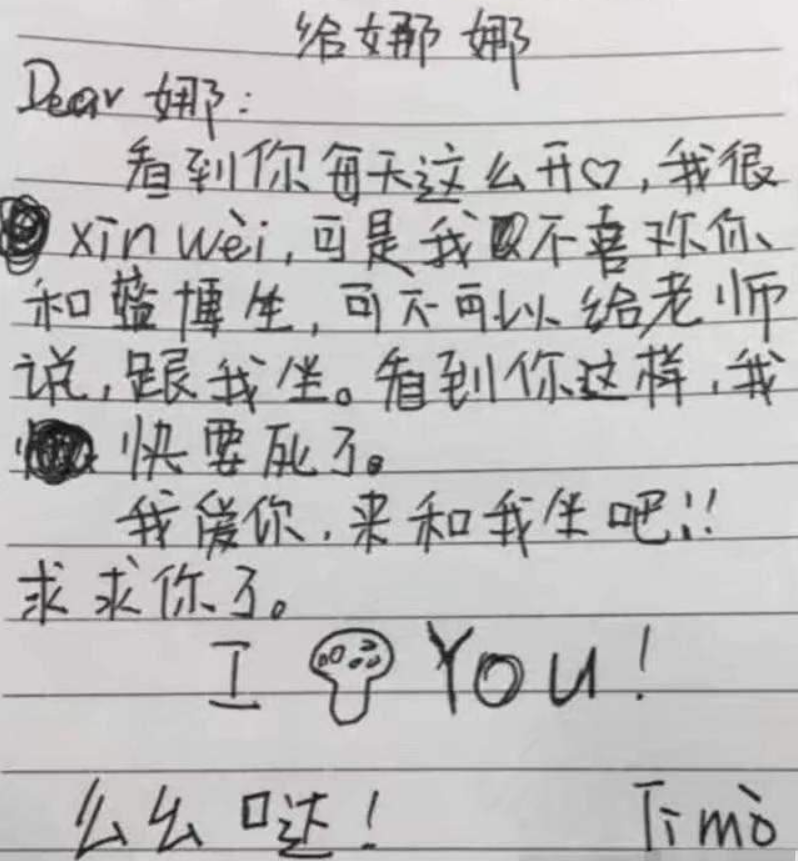 给娜娜
Dear 娜:
看到你每天这么开♡,我很
xīn wèi,可是我不喜欢你
和蓝博坐,可不可以给老师
说,跟我坐。看到你这样,我
快要死了。
我爱你,来和我坐吧!!
求求你了。
I You!
么么哒!
Timo